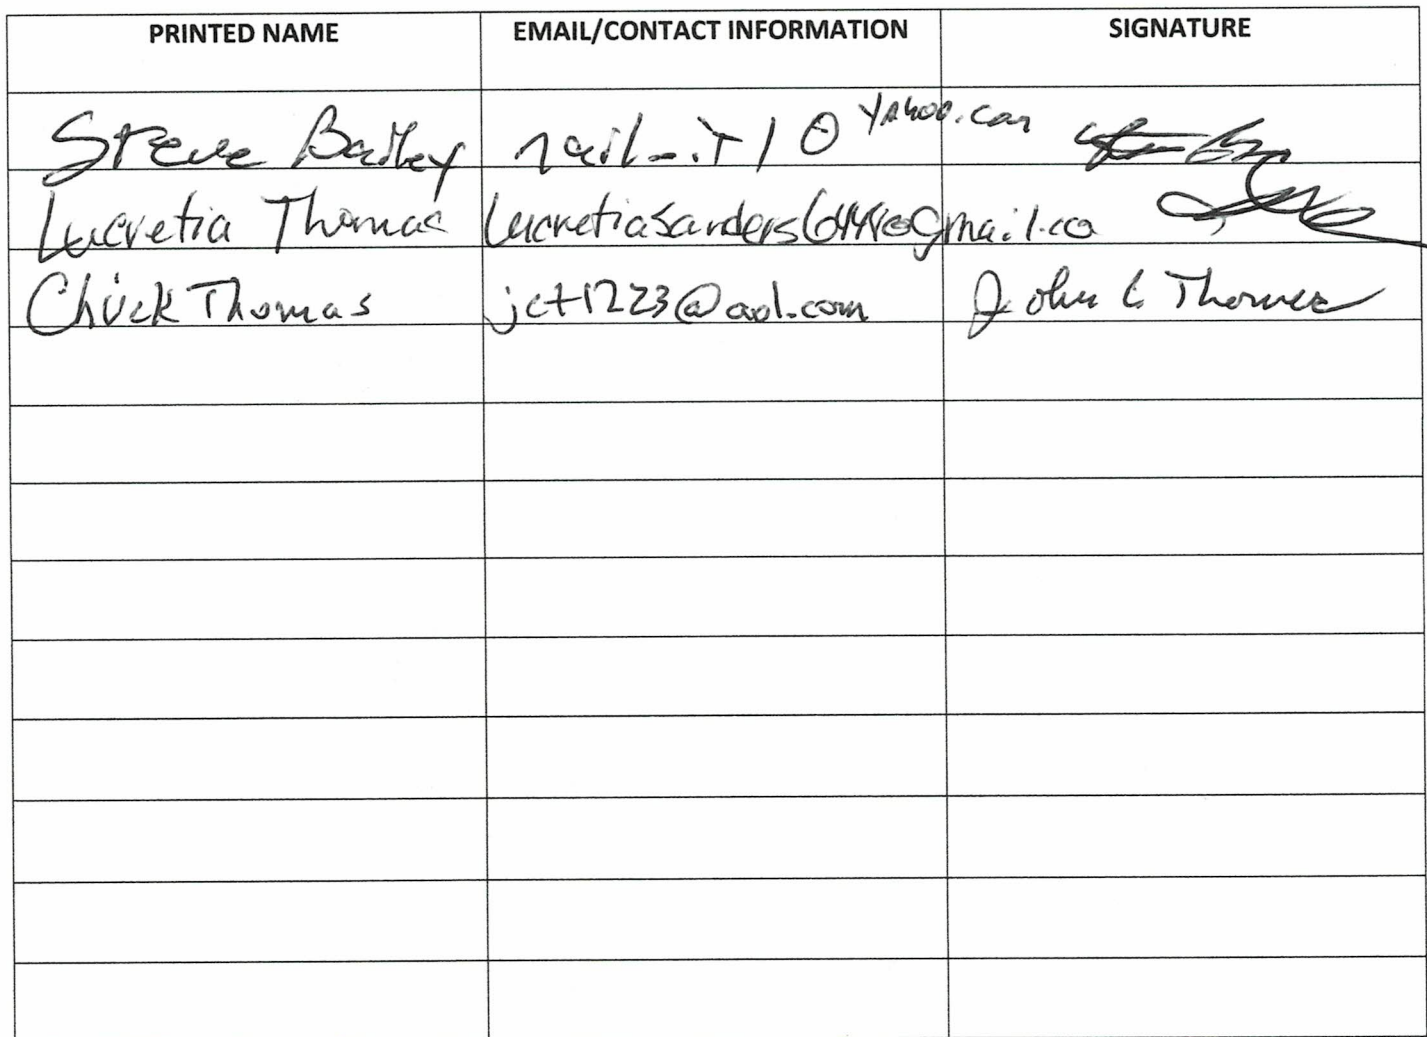 PRINTED NAME EMAIL/CONTACT INFORMATION SIGNATURE
Steve Bailey nail_it1@yahoo.com
Lucretia Thomas John C Thomas
Chuck Thomas jct1223@aol.com John C Thomas